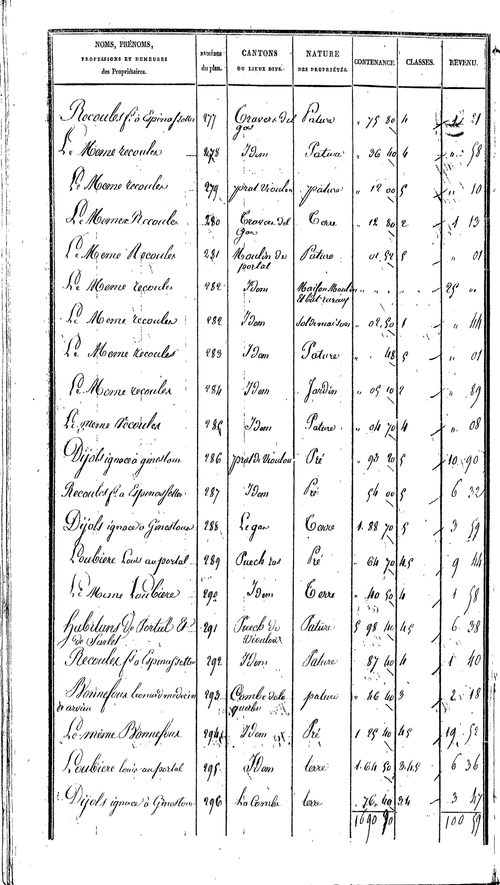 NOMS, PRÉNOMS, PROFESSIONS ET DEMEURES des Propriétaires. NUMÉROS du plan. CANTONS OU LIEUX DITS. NATURE DES PROPRIÉTÉS. CONTENANCE. CLASSES. REVENU.
Recoules fs à Espinassettes 277 Travers del gas Pature " 75 80 4 1 21
Le Meme recoules 278 Idem Pature " 36 40 4 " 58
Le Meme recoules 279 prat viouleu pature " 12 00 5 " 10
Le Meme Recoules 280 Travers del gas Terre " 12 80 2 1 13
Le Meme Recoules 281 Moulin de portal Pature 01 52 5 " 01
Le Meme recoules 282 Idem Maison Moulin " " " 25 "
Le Meme recoules 282 Idem Sol de maison " 02 50 1 " 44
Le Meme recoules 283 Idem Pature " " 48 5 " 01
Le Meme recoules 284 Idem Jardin " 05 10 2 " 89
Le meme Recoules 285 Idem Pature " 04 70 4 " 08
Dijols ignace à ginestous 286 prat de viouleu Pré " 93 20 5 10 90
Recoules fs à Espinassettes 287 Idem Pré 54 00 5 6 32
Dijols ignace à Ginestous 288 Le gas Terre 1 88 70 5 3 59
Loubiere Louis au portal 289 Puech ras Pré " 64 70 4.5 9 44
Le Meme Loubiere 290 Idem Terre " 40 50 4 1 58
habitans de Portal & de 291 Puech de viouleu Pature 5 98 40 4.5 6 38
Recoules fs à Espinassettes 292 Idem Pature " 87 40 4 1 40
Bonnefous leonard medecin à arvieu 293 Combe de la pature " 46 40 3 2 18
Le même Bonnefous 294 Idem Pré 1 25 40 4.5 19 52
Loubiere louis au portal 295 Idem terre 1 64 50 3.4.5 6 36
Dijols ignace à Ginestous 296 La Combe terre " 76 40 3.4 3 47
1690 90 100 59